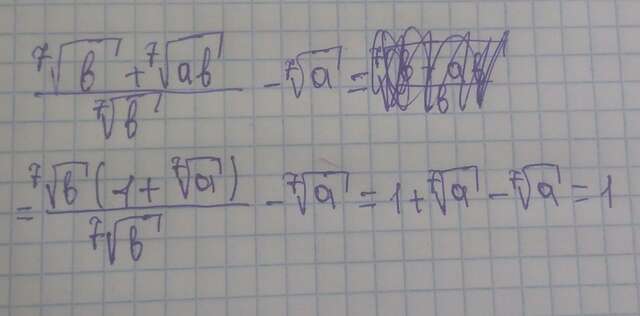 (⁷√b + ⁷√ab) / ⁷√b - ⁷√a =
= ⁷√b (1 + ⁷√a) / ⁷√b - ⁷√a = 1 + ⁷√a - ⁷√a = 1